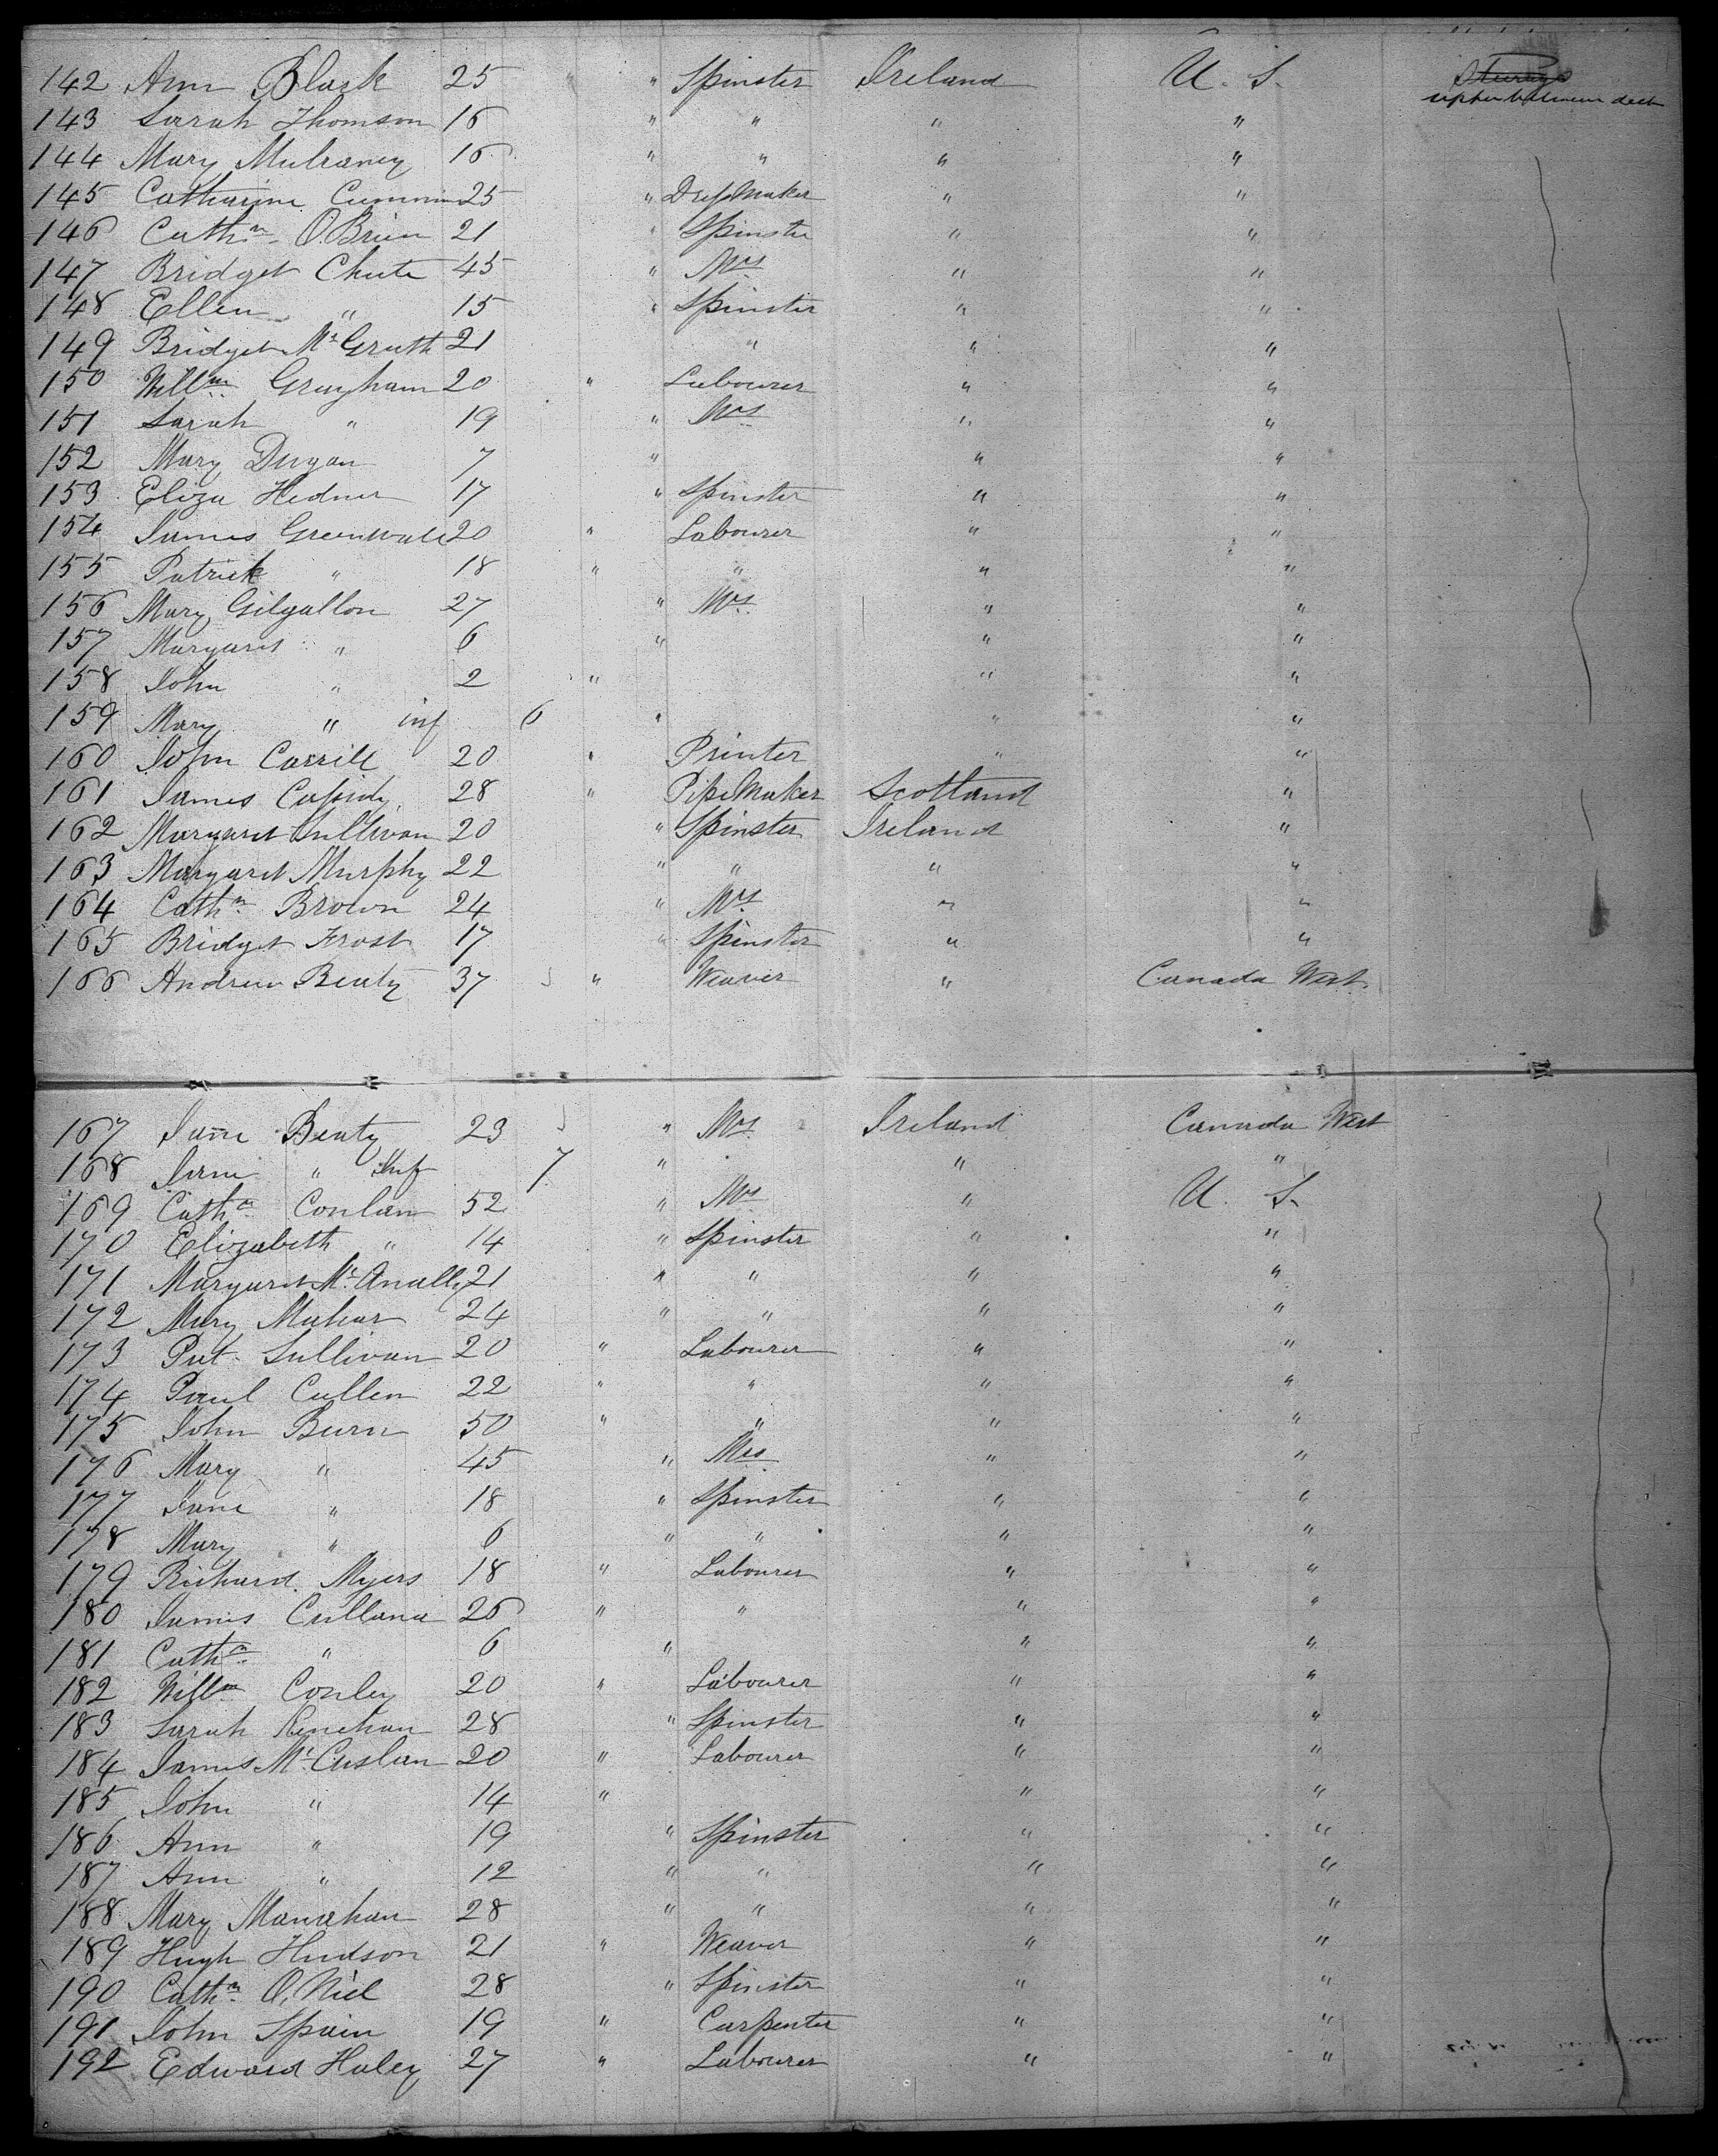 142 Ann Black 25 " Spinster Ireland U. S. Steerage
upper between deck
143 Sarah Thomson 16 " " " "
144 Mary Mulraney 16 " " " "
145 Catharine Cummin 25 " DressMaker " "
146 Cathn O'Brien 21 " Spinster " "
147 Bridget Chute 45 " Mrs " "
148 Ellen " 15 " Spinster " "
149 Bridget Mc Grath 21 " " "
150 Willm Grayham 20 " Labourer " "
151 Sarah " 19 " Mrs " "
152 Mary Dugan 7 " " "
153 Eliza Hedner 17 " Spinster " "
154 James Greenwale 20 " Labourer " "
155 Patrick " 18 " " " "
156 Mary Gilgallon 27 " Mrs " "
157 Margaret " 6 " " "
158 John " 2 " " "
159 Mary " inf 6 " " "
160 John Carrill 20 " Printer " "
161 James Cassidy 28 " PipeMaker Scotland "
162 Margaret Sullivan 20 " Spinster Ireland "
163 Margaret Murphy 22 " " " "
164 Cathn Brown 24 " Mrs " "
165 Bridget Frost 17 " Spinster " "
166 Andrew Beaty 37 " Weaver " Canada West
167 Jane Beaty 23 " Mrs Ireland Canada West
168 Jane " Inf 7 " " "
169 Cathn Conlan 52 " Mrs " U. S.
170 Elizabeth " 14 " Spinster " "
171 Margaret Mc Anally 21 " " " "
172 Mary Mahar 24 " " " "
173 Pat Sullivan 20 " Labourer " "
174 Paul Cullen 22 " " " "
175 John Burn 50 " " " "
176 Mary " 45 " Mrs " "
177 Jane " 18 " Spinster " "
178 Mary " 6 " " " "
179 Richard Myers 18 " Labourer " "
180 James Cullana 26 " " " "
181 Cathn " 6 " " "
182 Willm Conley 20 " Labourer " "
183 Sarah Renehan 28 " Spinster " "
184 James Mc Cuslan 20 " Labourer " "
185 John " 14 " " "
186 Ann " 19 " Spinster " "
187 Ann " 12 " " " "
188 Mary Manahan 28 " " " "
189 Hugh Hudson 21 " Weaver " "
190 Cathn O'Niel 28 " Spinster " "
191 John Spain 19 " Carpenter " "
192 Edward Haley 27 " Labourer " "